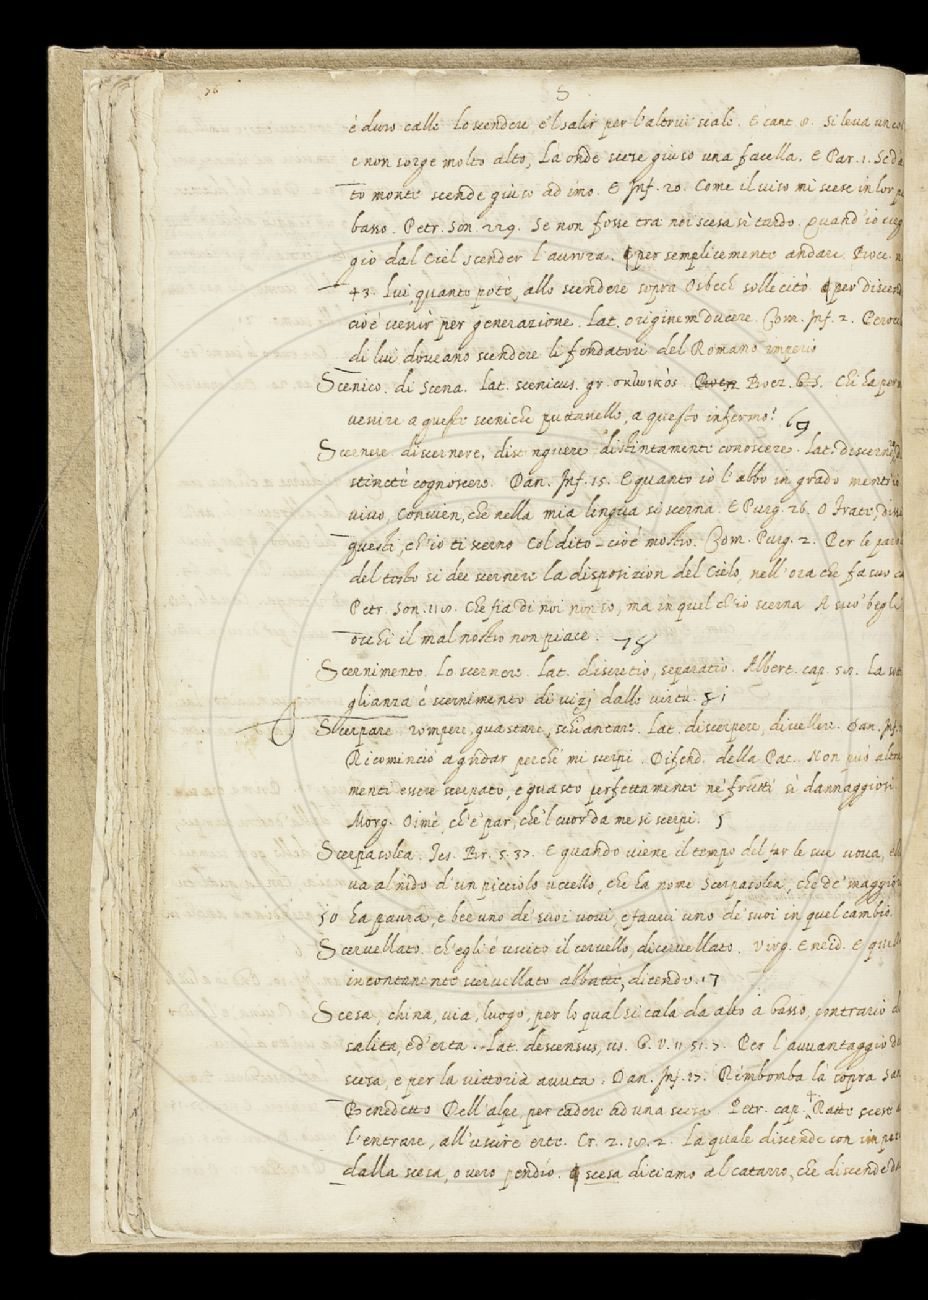 76
S
è duro calle Lo scendere e'l salir per l'altrui scale. E cant. 8. Si leva un
e non sorge molto alto, La onde scese giuso una facella. E Par. 1. Se d'
to monte scende giuso ad imo. E Inf. 20. Come il viso mi scese in lor
basso. Petr. Son. 229. Se non fosse tra noi scesa sì tardo. Quand' io veg
gio dal Ciel scender l'aurora. ¶ per semplicemente andare. Bocc. n.
43. Lui, quanto potè, allo scendere sopra Osbech sollecitò. ¶ per discend
cioè venir per generazione. Lat. originem ducere. Com. Inf. 2. Perocch
di lui doveano scendere li fondatori del Romano imperio
Scenico. di Scena. Lat. scenicus. gr. σκηνικὸς. Boez. 65. Chi ha per
venire a queste sceniche puttanelle, a questo infermo? 69
Scernere. discernere, distinguere, distintamente conoscere. Lat. discernere, di
stincte cognoscere. Dan. Inf. 15. E quanto io l'abbo in grado mentr' io
vivo, Convien, che nella mia lingua si scerna. E Purg. 26. O frate, disse
questi, ch'io ti scerno Col dito - cioè mostro. Com. Purg. 2. Per le paro
del testo si dee scernere la disposizion del Cielo, nell'ora che fa suo
Petr. Son. 118. Che fia di noi non so, ma in quel ch'io scerna A suo' begli
occhi il mal nostro non piace. 78
Scernimento. Lo scernere. Lat. discretio, separatio. Albert. cap. 58. La
glianza è scernimento di vizj dalle virtù. 51
Scerpare. rompere, guastare, schiantare. Lat. discerpere, divellere. Dan. Inf.
Ricominciò a gridar perchè mi scerpi. Difend. della Pac. Non può altra
menti essere scerpato, e guasto perfettamente nè frutti sì dannaggiosi
Morg. Oimè, ch'e' par, che'l cuor da me si scerpi. 5
Scerpasolea. Tes. Br. 5. 37. E quando viene il tempo del far le sue uova, ella
va al nido d'un picciolo uccello, che ha nome Scerpasolea, che de' maggior
50 ha paura, e bee uno de' suoi uovi, e favvi uno de' suoi in quel cambio.
Scervellato. ch'egli è uscito il cervello, dicervellato. Virg. Eneid. E quello
incontanente scervellato abbatte, dicendo. 17
Scesa, china, via, luogo, per lo qual si cala da alto a basso, contrario di
salita, ed'erta. Lat. descensus, us. G. V. 11. 51. 7. Per l'avvantaggio della
scesa, e per la vittoria avuta. Dan. Inf. 17. Rimbomba là sopra San
Benedetto Dell'alpe, per cadere ad una scesa. Petr. cap. Ratte scese
l'entrare, all'uscire erte. Cr. 2. 18. 2. La quale discende con impeto
dalla scesa, o vero pendio. ¶ scesa diciamo al catarro, che discende da